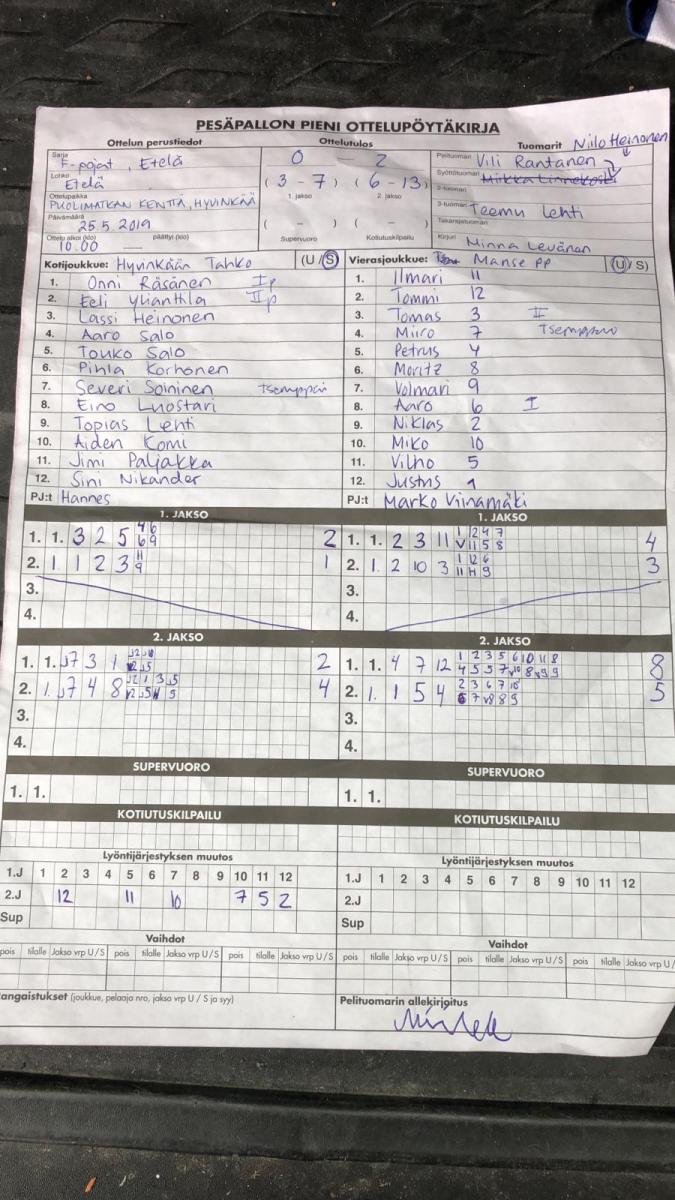 PESÄPALLON PIENI OTTELUPÖYTÄKIRJA
Ottelun perustiedot
Ottelutulos
Tuomarit Niilo Heinonen
Sarja F-pojat, Etelä
0 - 2
Pelituomari Vili Rantanen
Lohko Etelä
(3 - 7) (6 - 13)
1. jakso 2. jakso
Syöttötuomari Miikka Linnekoski
Ottelupaikka PUOLIMATKAN KENTTÄ, HYVINKÄÄ
2-tuomari
Päivämäärä 25.5.2019
( - ) ( - )
3-tuomari Teemu Lehti
Takarajatuomari
Ottelu alkoi (klo) 10.00 päättyi (klo)
Supervuoro Kotiutuskilpailu
Kirjuri Minna Levänen
Kotijoukkue: Hyvinkään Tahko (U / S)
1. Onni Räsänen Ip
2. Eeli Ylianttila IIp
3. Lassi Heinonen
4. Aaro Salo
5. Touko Salo
6. Pihla Korhonen
7. Severi Soininen Tsemppari
8. Eino Luostari
9. Topias Lehti
10. Aiden Komi
11. Jimi Paljakka
12. Sini Nikander
PJ:t Hannes
Vierasjoukkue: Manse PP (U / S)
1. Ilmari 11
2. Tommi 12
3. Tomas 3 II
4. Miiro 7 Tsemppari
5. Petrus 4
6. Moritz 8
7. Volmari 9
8. Aaro 6 I
9. Niklas 2
10. Miko 10
11. Vilho 5
12. Justus 1
PJ:t Marko Viinamäki
1. JAKSO
1. 1. 3 2 5 2
2. 1. 1 2 3 1
3.
4.
1. JAKSO
1. 1. 2 3 11 4
2. 1. 2 10 3 3
3.
4.
2. JAKSO
1. 1. J7 3 1 2
2. 1. J7 4 8 4
3.
4.
2. JAKSO
1. 1. 4 7 12 8
2. 1. 1 5 4 5
3.
4.
SUPERVUORO
1. 1.
SUPERVUORO
1. 1.
KOTIUTUSKILPAILU
KOTIUTUSKILPAILU
Lyöntijärjestyksen muutos
1.J 1 2 3 4 5 6 7 8 9 10 11 12
2.J 12 11 10 7 5 2
Sup
Lyöntijärjestyksen muutos
1.J 1 2 3 4 5 6 7 8 9 10 11 12
2.J
Sup
Vaihdot
pois tilalle Jakso vrp U/S pois tilalle Jakso vrp U/S pois tilalle Jakso vrp U/S
Vaihdot
pois tilalle Jakso vrp U/S pois tilalle Jakso vrp U/S pois tilalle Jakso vrp U/
angaistukset (joukkue, pelaaja nro, jakso vrp U / S ja syy)
Pelituomarin allekirjoitus